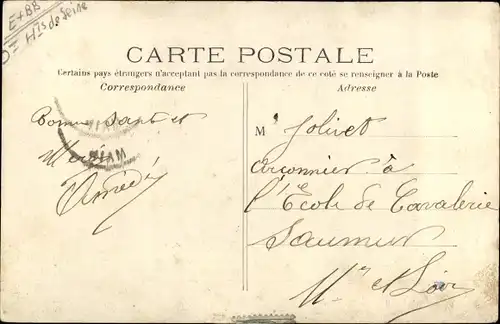 E+BB
Hts de Seine
CARTE POSTALE
Certains pays étrangers n'acceptant pas la correspondance de ce coté se renseigner à la Poste
Correspondance
Adresse
Bonne Santé et
Merci
Amédé
M Jolivet
arçonnier à
l'Ecole de Cavalerie
Saumur
Mne et Loire